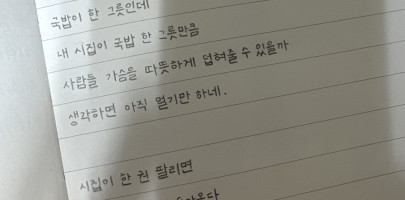 국밥이 한 그릇인데
내 시집이 국밥 한 그릇만큼
사람들 가슴을 따뜻하게 덥혀줄 수 있을까
생각하면 아직 멀기만 하네.
시집이 한 권 팔리면